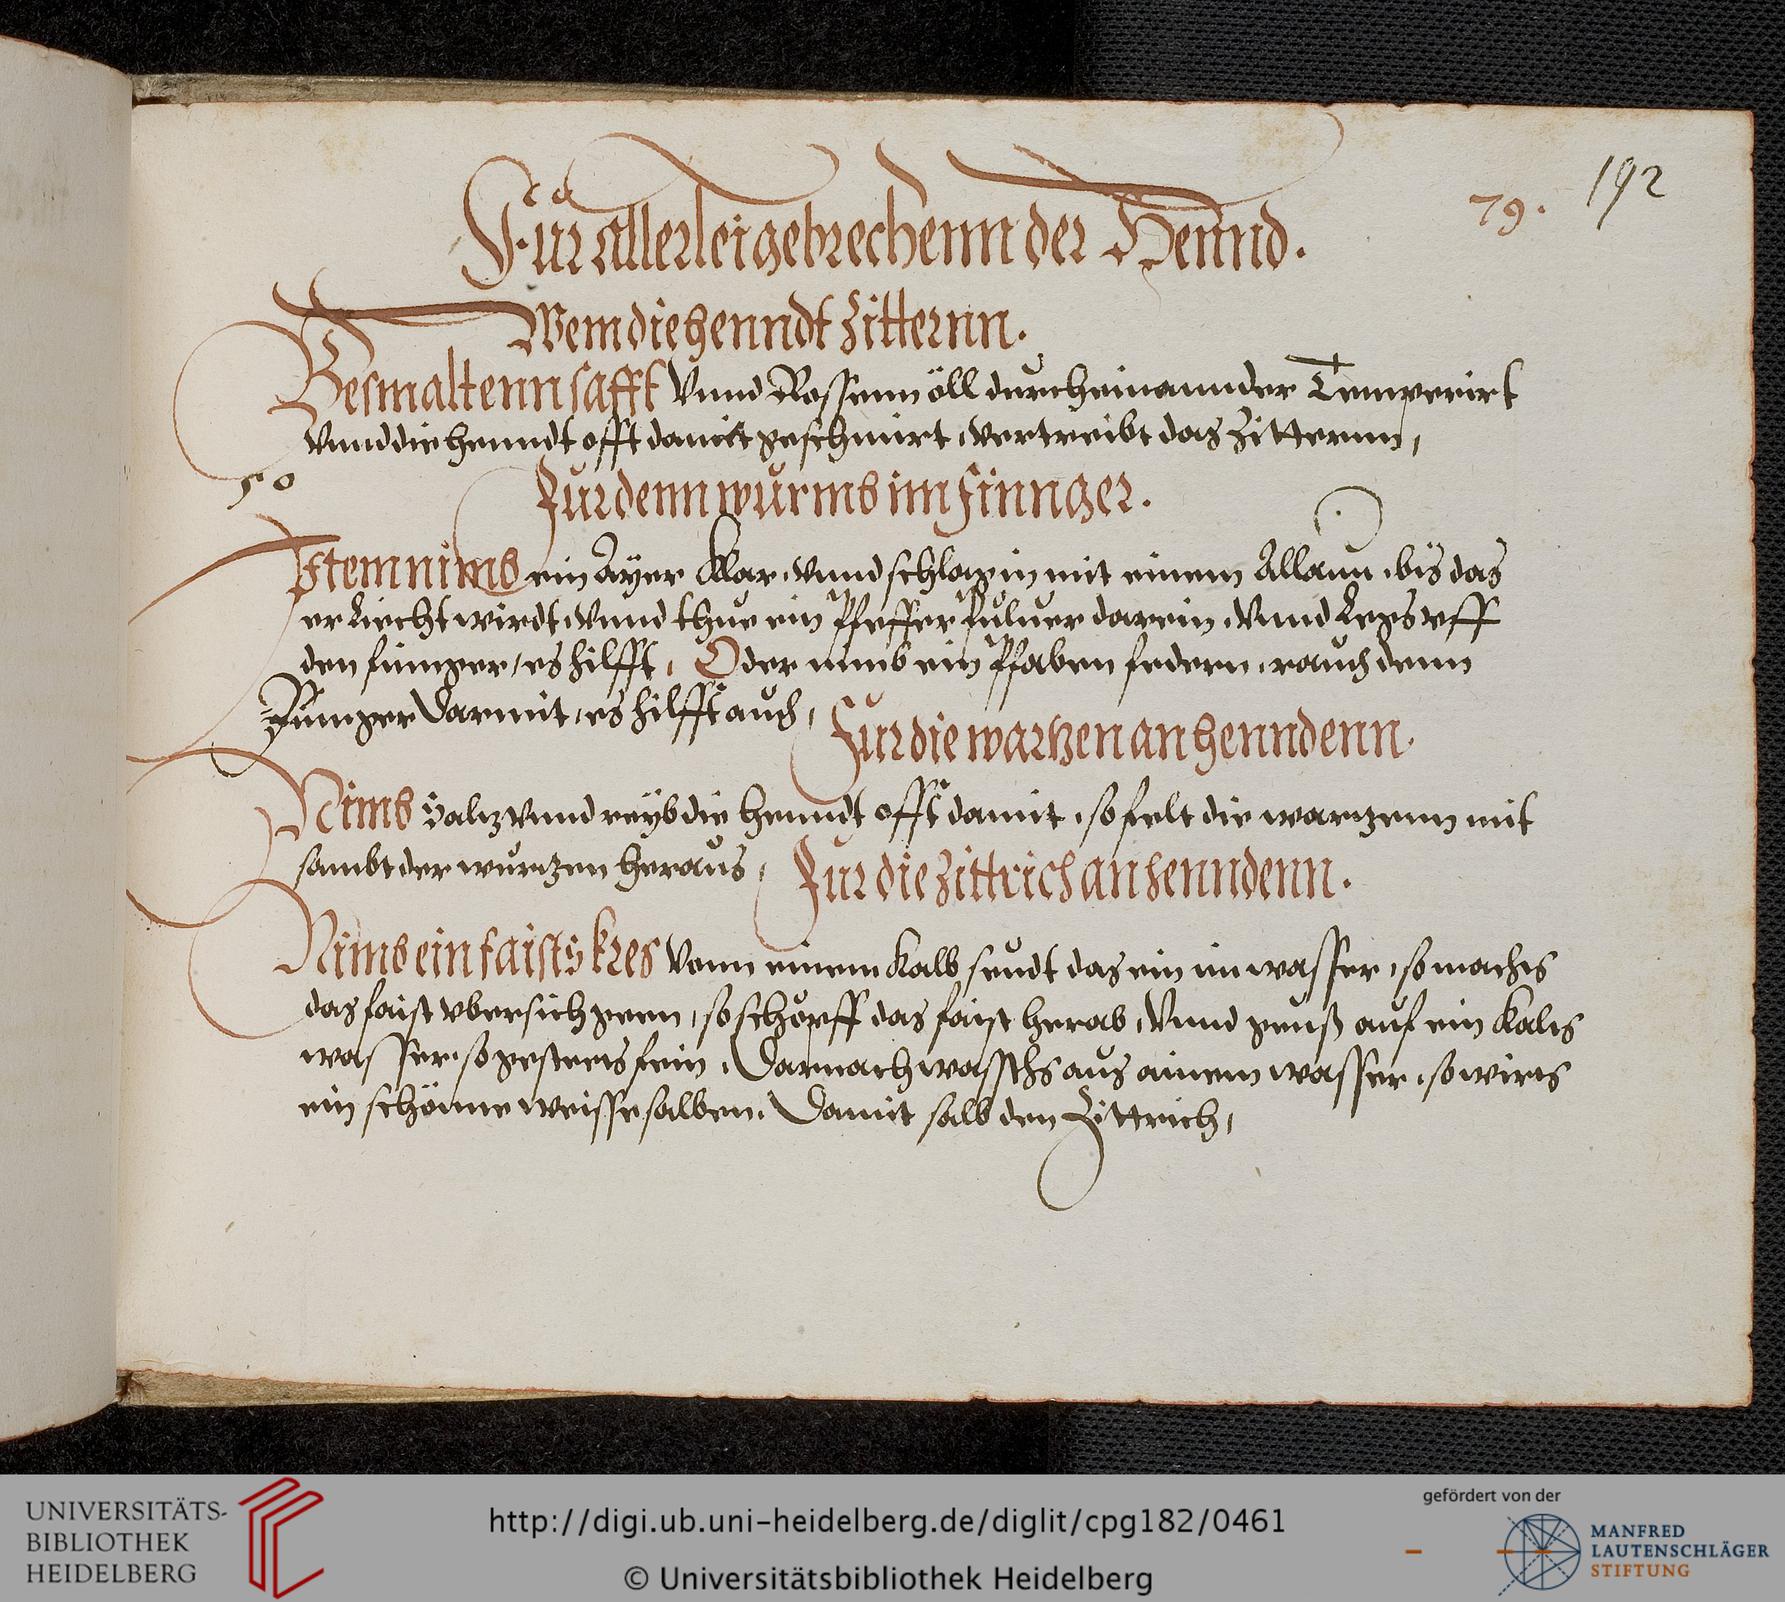 79. 192
Für allerlei gebrechenn der Hennd.
Wem die henndt zitternn.
Besmaltenn safft vnnd Rossenn öll durcheinannder Temperirt
vnnd die henndt offt damit geschmirt, vertreibt das zitternn,
50
Für denn wurmb im finnger.
Item nimb ein Ayer klar, vnnd schlag in mit einem Allaun, bis das
er liecht wirdt, vnnd thue ein Pfeffer puluer darein, vnnd legs vff
den finnger, es hilfft, Oder nimb ein Pfaben federn, rauch denn
Finnger Darmit, es hilfft auch,
Fur die wartzen an henndenn.
Nimb Saltz vnnd reyb die henndt offt damit, so felt die wartzenn mit
sambt der wurtzen heraus,
Fur die zittrich an henndenn.
Nimb ein faists kres vonn einem Kalb seudt das ein im wasser, so machts
das faist vbersich geen, so schöpff das faist herab, Vnnd geuß auf ein Kalts
wasser, so gesteets fein, Darnach waschs aus ainem wasser, so wirts
ein schönne weisse salben, Damit salb den Zittrich,
UNIVERSITÄTS-
BIBLIOTHEK
HEIDELBERG
http://digi.ub.uni-heidelberg.de/diglit/cpg182/0461
© Universitätsbibliothek Heidelberg
gefördert von der
MANFRED
LAUTENSCHLÄGER
STIFTUNG